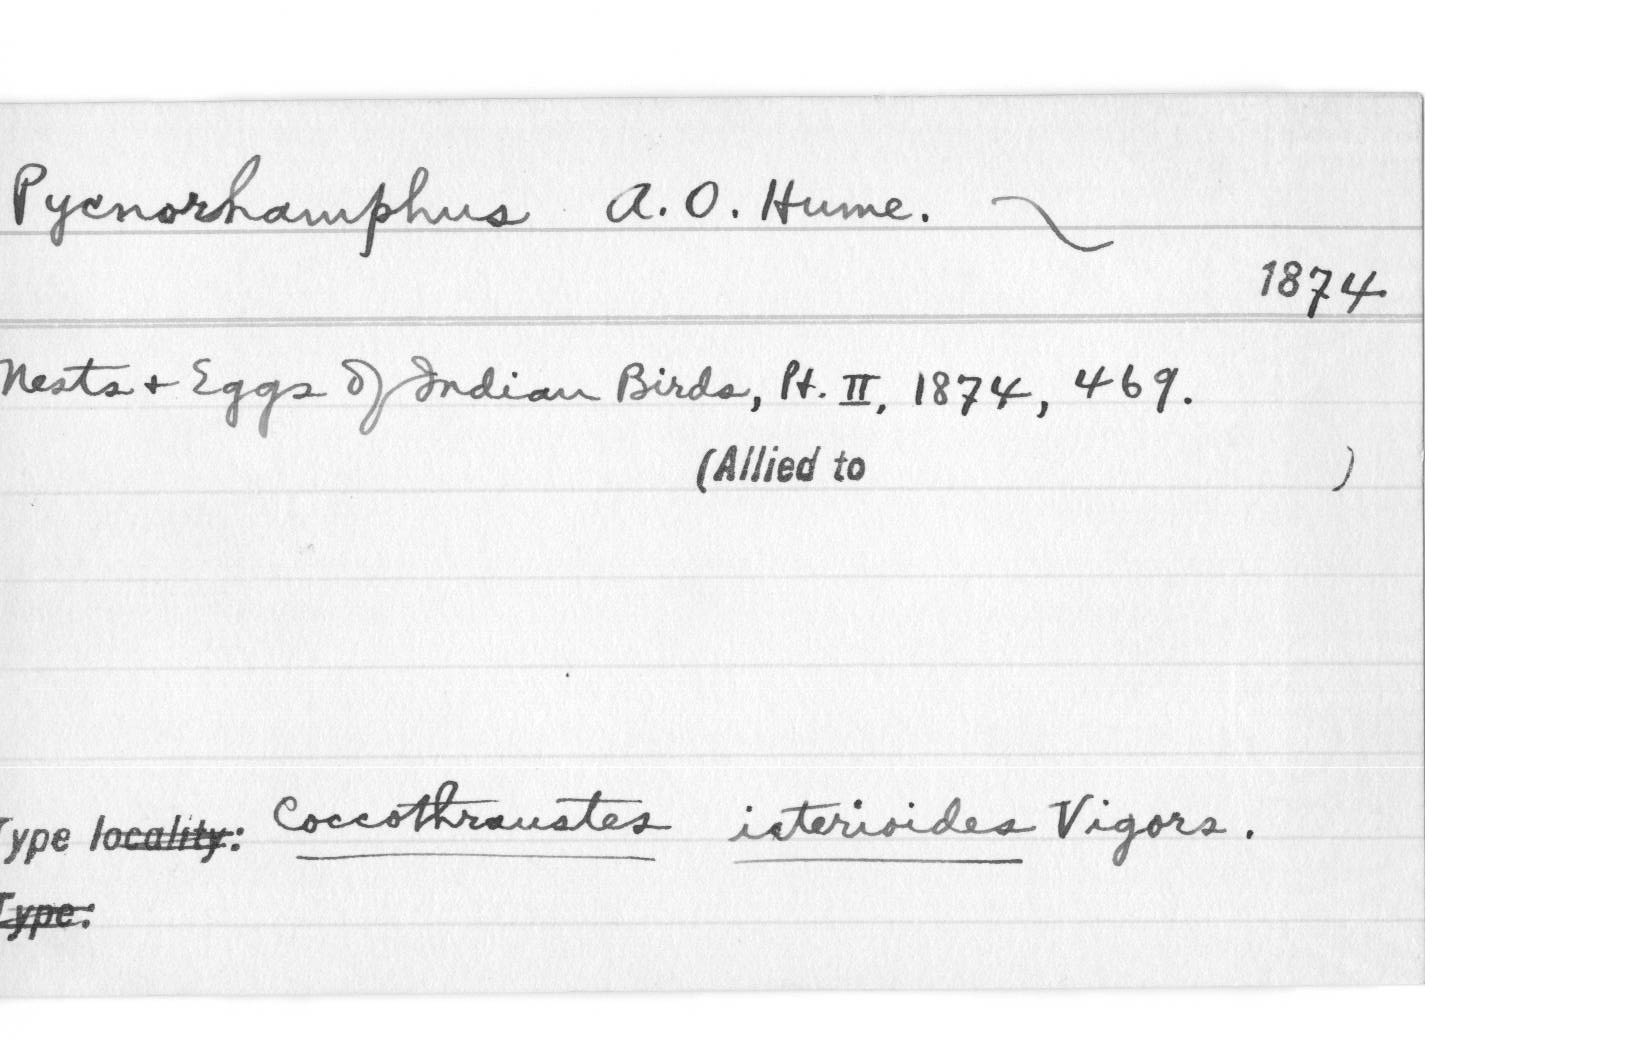 Pycnorhamphus A. O. Hume.
1874.
Nests + Eggs of Indian Birds, Pt. II, 1874, 469.
(Allied to )
Type locality: Coccothraustes icterioides Vigors.
Type: